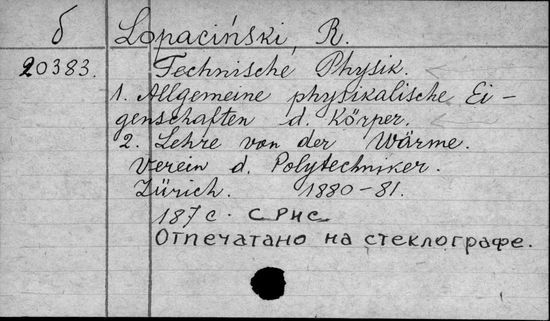 б Lopaciński, R.
20383. Technische Physik.
1. Allgemeine physikalische Ei-
genschaften d. Körper.
2. Lehre von der Wärme.
Verein d. Polytechniker.
Zürich. 1880-81.
187 с. с рис
Отпечатано на стеклографе.